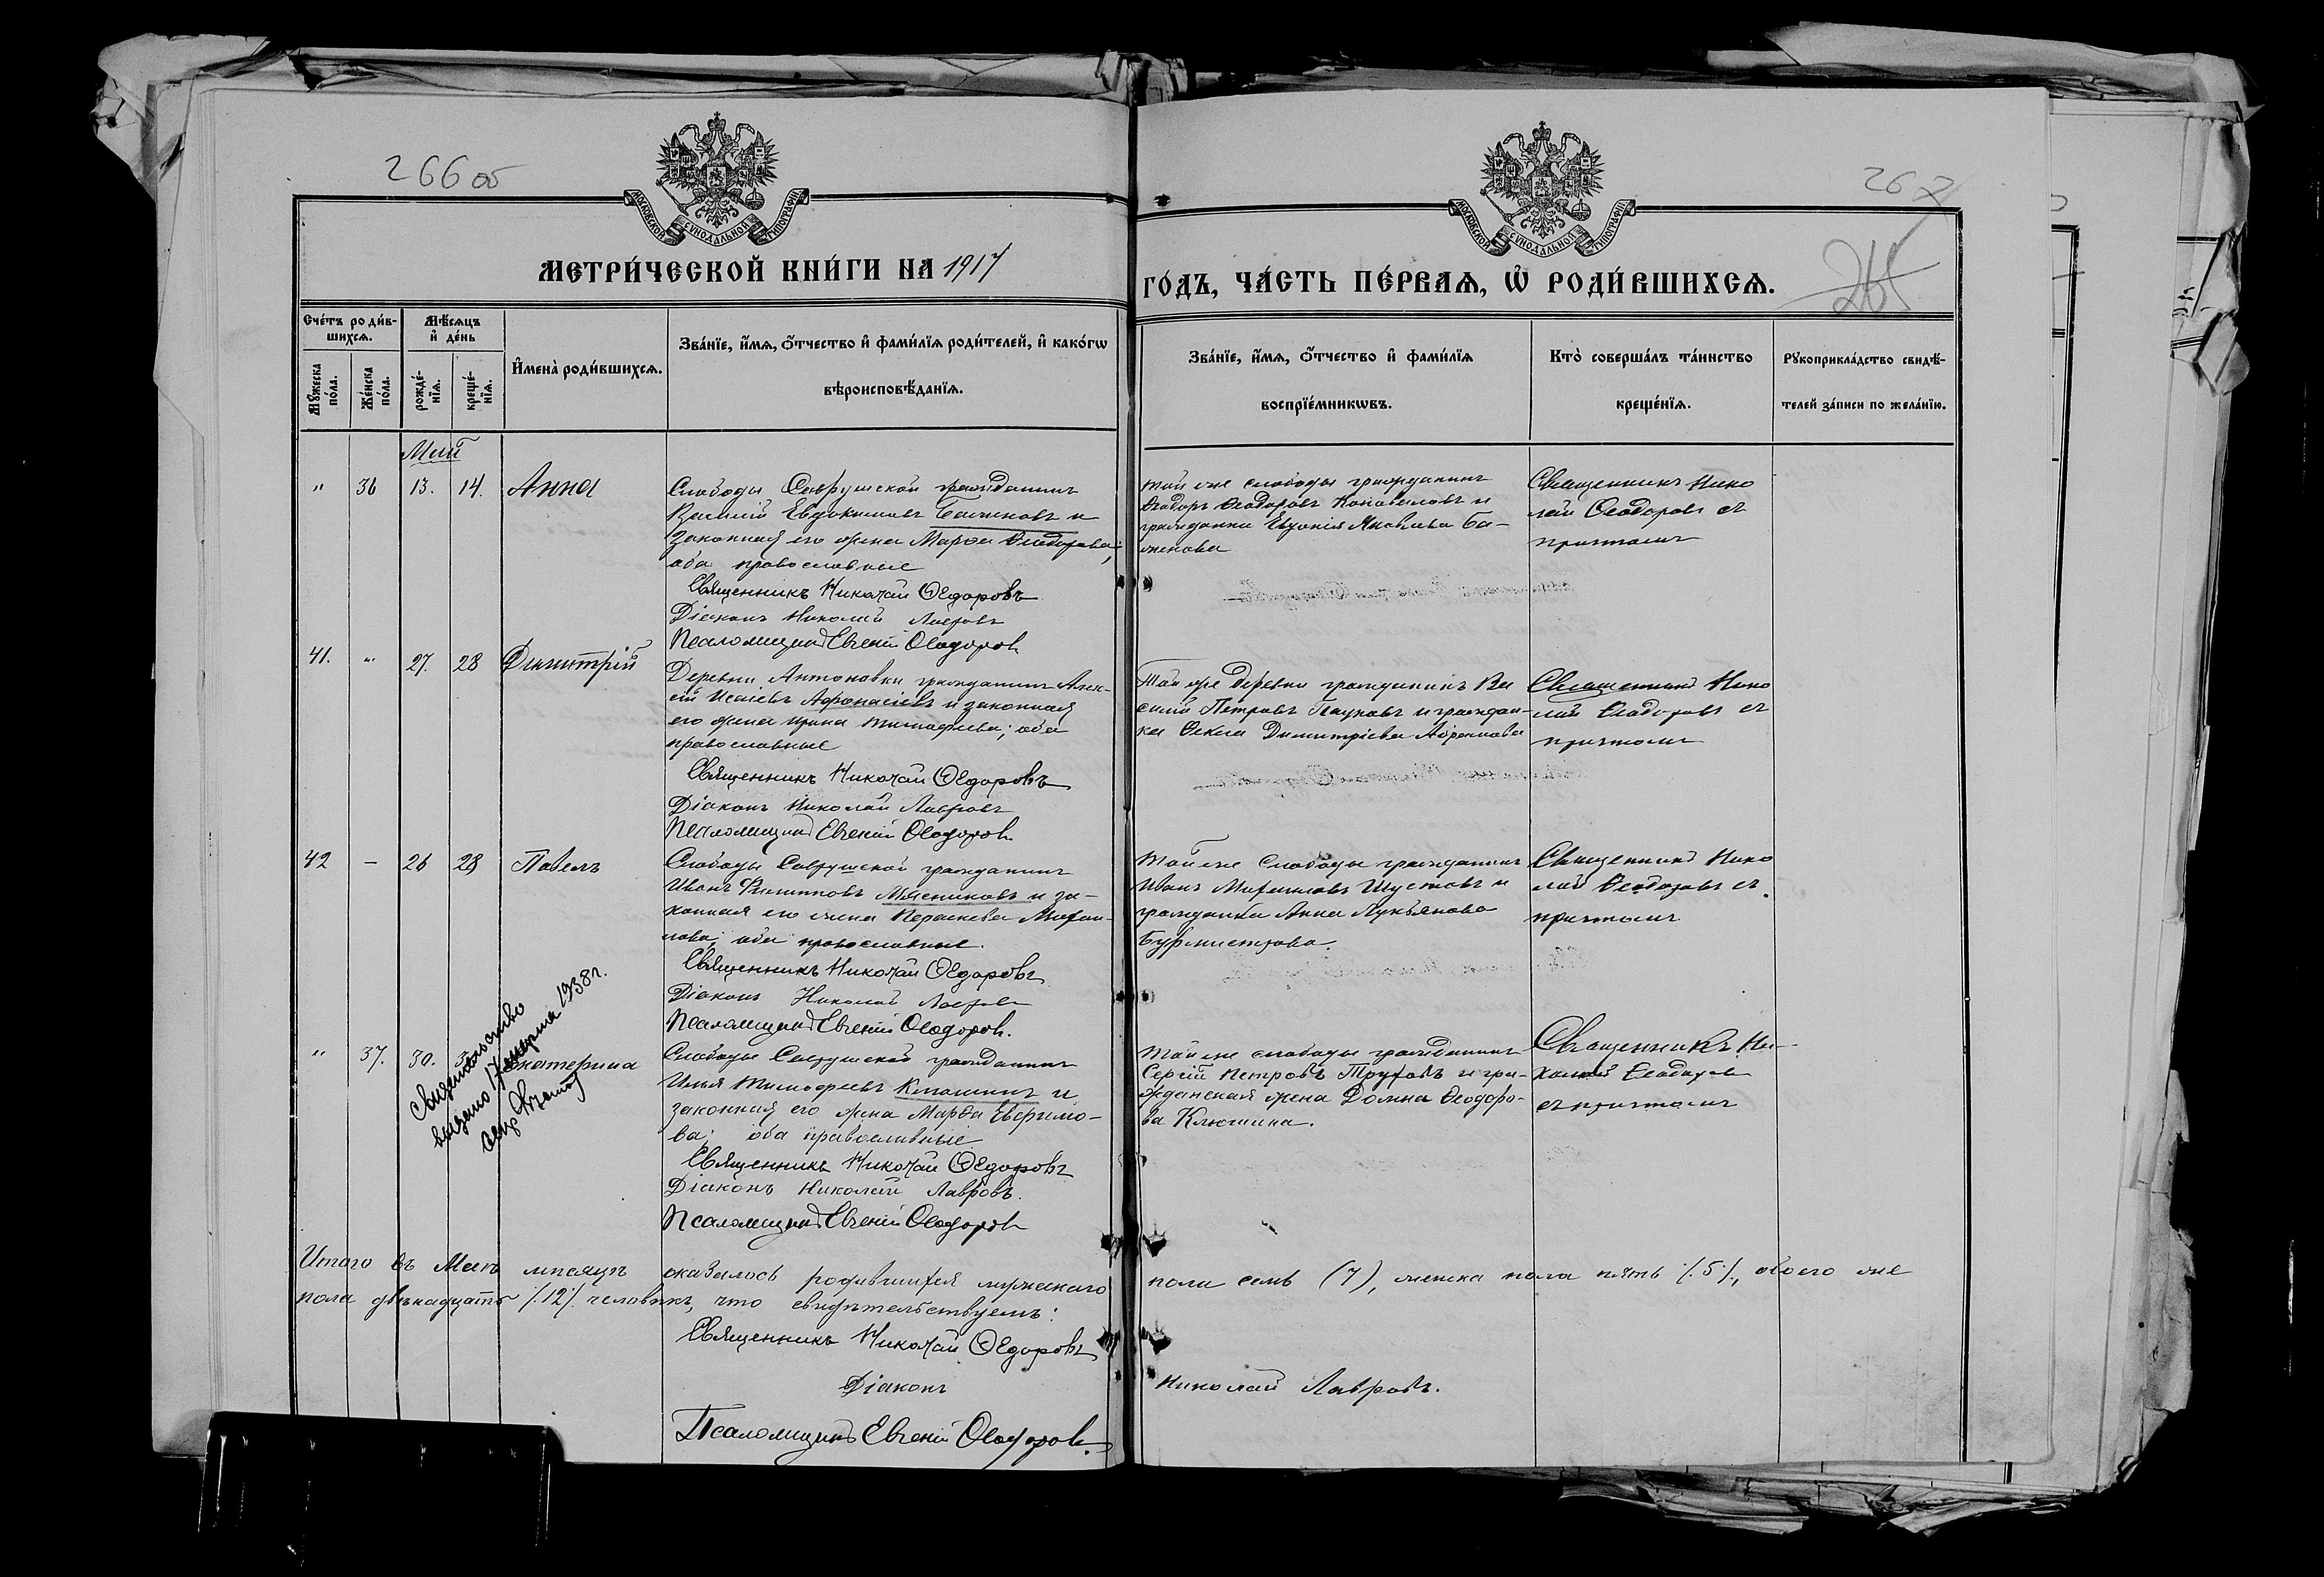 266 об
267
МОСКОВСКОЙ СУНОДАЛЬНОЙ ТИПОГРАФІИ
МОСКОВСКОЙ СУНОДАЛЬНОЙ ТИПОГРАФІИ
МЕТРИ́ЧЕСКОЙ КНИ́ГИ НА 1917
ГО́ДЪ, ЧА́СТЬ ПЕ́РВАѦ, Ѿ РОДИ́ВШИХСѦ.
Сче́тъ роди́в-
шихсѧ.
Мѣ́сѧцъ
и҆ де́нь
Мꙋ́жеска
по́ла.
Же́нска
по́ла.
рожде́-
нїѧ.
креще́-
нїѧ.
И҆мена̀ роди́вшихсѧ.
Зва́нїе, и҆́мѧ, ѻ҆́тчество и҆ фами́лїѧ роди́телей, и҆ како́гѡ
вѣроисповѣ́данїѧ.
Зва́нїе, и҆́мѧ, ѻ҆́тчество и҆ фами́лїѧ
воспрїе́мникѡвъ.
Кто̀ соверша́лъ та́инство
креще́нїѧ.
Рꙋкоприкла́дство свидѣ́-
телей за́писи по жела́нїю.
Май
" 36 13. 14. Анна
Слободы гражданинъ
Василій Евдокимовъ Баженовъ и
законная его жена Марѳа Ѳеодорова;
оба православные
Священникъ Николай Ѳедоровъ
Діаконъ Николай Лавровъ
Псаломщикъ Евгеній Ѳеодоровъ
той же слободы гражданинъ
Ѳеодоръ Ѳеодоровъ Коноваловъ и
гражданка Евгенія Яковлева Ба-
женова
Священникъ Нико
лай Ѳеодоровъ съ
причтомъ
41. " 27. 28 Димитрій
Деревни Антоновки гражданинъ Алек-
сій Исаіевъ Афонасіевъ и законная
его жена Ирина Тимофеева; оба
православные
Священникъ Николай Ѳедоровъ
Діаконъ Николай Лавровъ
Псаломщикъ Евгеній Ѳеодоровъ
Той же деревни гражданинъ Ва
силій Петровъ Пауковъ и граждан-
ка Ѳекла Димитріева Абрамова
Священникъ Нико
лай Ѳеодоровъ съ
причтомъ
42 – 26 28 Павелъ
Слободы гражданинъ
Иванъ Филипповъ Мясниковъ и за-
конная его жена Параскева Михаи-
лова; оба православные.
Священникъ Николай Ѳедоровъ
Діаконъ Николай Лавровъ
Псаломщикъ Евгеній Ѳеодоровъ.
Той же слободы гражданинъ
Иванъ Михаиловъ Шустовъ и
гражданка Анна Лукьянова
Бурмистрова.
Священникъ Нико
лай Ѳеодоровъ съ
причтомъ
" 37. 30. Екатерина
Свидетельство
выдано 17 января 1938 г.
Слободы гражданинъ
Илья Тимофеевъ Клюшинъ и
законная его жена Марѳа Евфимо-
ва; оба православные
Священникъ Николай Ѳедоровъ
Діаконъ Николай Лавровъ.
Псаломщикъ Евгеній Ѳеодоровъ
Той же слободы гражданинъ
Сергій Петровъ Труховъ и гра-
жданская жена Домна Ѳеодоро-
ва Клюшина.
Священникъ Ни-
колай Ѳеодоровъ
съ причтомъ
Итого въ Маѣ мѣсяцѣ оказалось родившихся мужескаго пола семь (7), женска пола пять /.5/., обоего же
пола двѣнадцать /.12/. человѣкъ, что свидѣтельствуемъ:
Священникъ Николай Ѳедоровъ
Діаконъ Николай Лавровъ.
Псаломщикъ Евгеній Ѳеодоровъ.